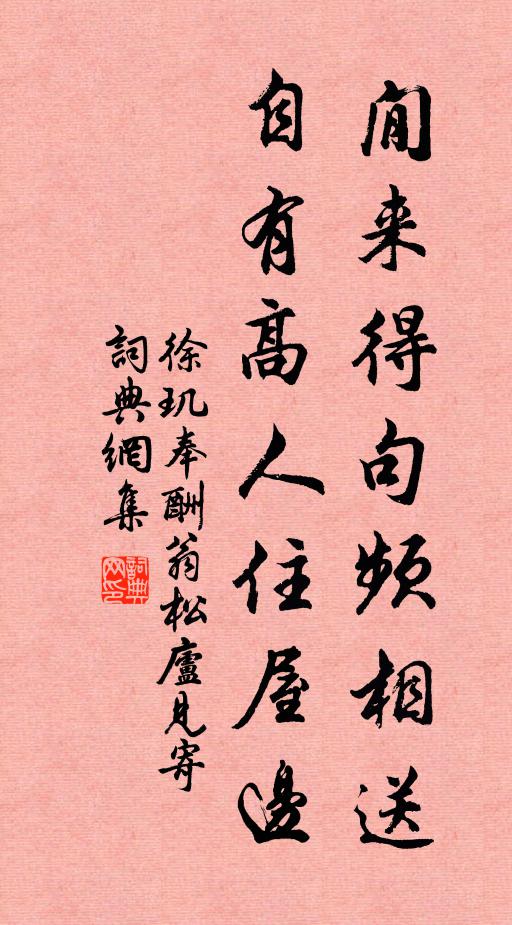 閒来得句頻相送
自有高人住屋邊
徐玑奉酬翁松廬見寄
詞典網集
詞典网印